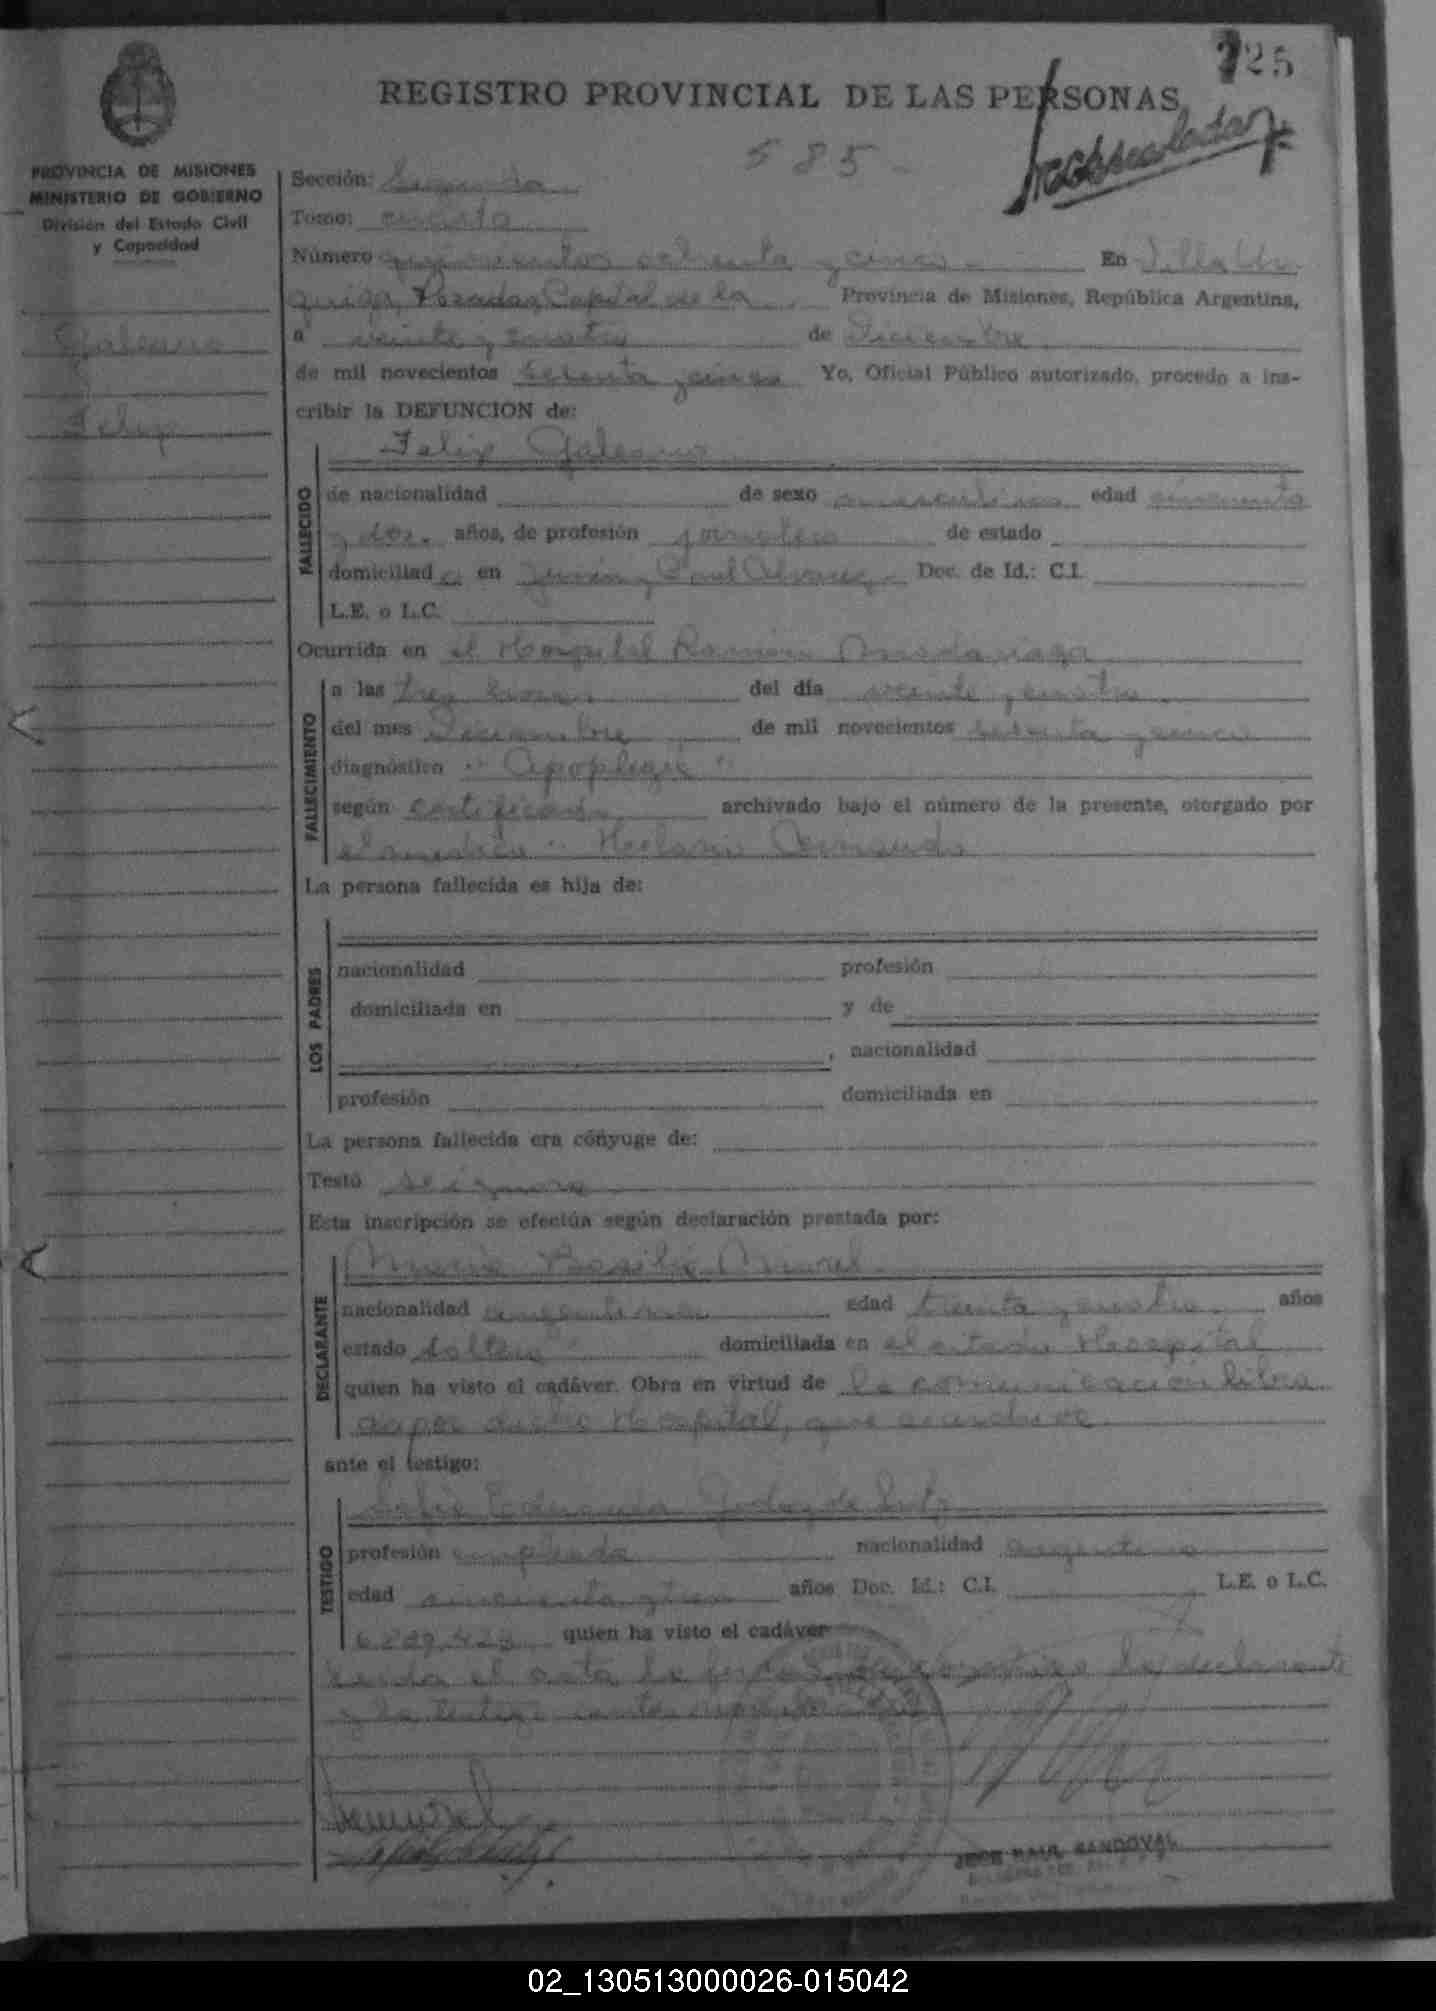 225
REGISTRO PROVINCIAL DE LAS PERSONAS
585
PROVINCIA DE MISIONES
MINISTERIO DE GOBIERNO
División del Estado Civil
y Capacidad
Galeano
Felix
Sección: Segunda
Tomo: cuarto
Número quinientos ochenta y cinco En Villa Ur
quiza, Posadas, Capital de la Provincia de Misiones, República Argentina,
a veinte y cuatro de Diciembre
de mil novecientos setenta y cinco Yo, Oficial Público autorizado, procedo a ins-
cribir la DEFUNCION de:
Felix Galeano
FALLECIDO
de nacionalidad de sexo masculino edad cincuenta
y dos. años, de profesión jornalero de estado
domiciliad o en Junin y Doc. de Id.: C.I.
L.E. o L.C.
Ocurrida en el Hospital Ramón Madariaga
FALLECIMIENTO
a las tres horas del día veinte y cuatro
del mes Diciembre de mil novecientos setenta y cinco
diagnóstico "Apoplegia"
según certificado archivado bajo el número de la presente, otorgado por
el medico
La persona fallecida es hija de:
LOS PADRES
nacionalidad profesión
domiciliada en y de
, nacionalidad
profesión domiciliada en
La persona fallecida era cónyuge de:
Testó se ignora
Esta inscripción se efectúa según declaración prestada por:
DECLARANTE
nacionalidad argentina edad treinta y cuatro. años
estado soltera domiciliada en el citado Hospital
quien ha visto el cadáver. Obra en virtud de la comunicación libra
da por dicho Hospital, que
ante el testigo:
TESTIGO
profesión empleada nacionalidad argentina
edad cincuenta y tres años Doc. Id.: C.I. L.E. o L.C.
quien ha visto el cadáver
Leida el acta la declarante
y la testigo
JOSE RAUL SANDOVAL
02_130513000026-015042